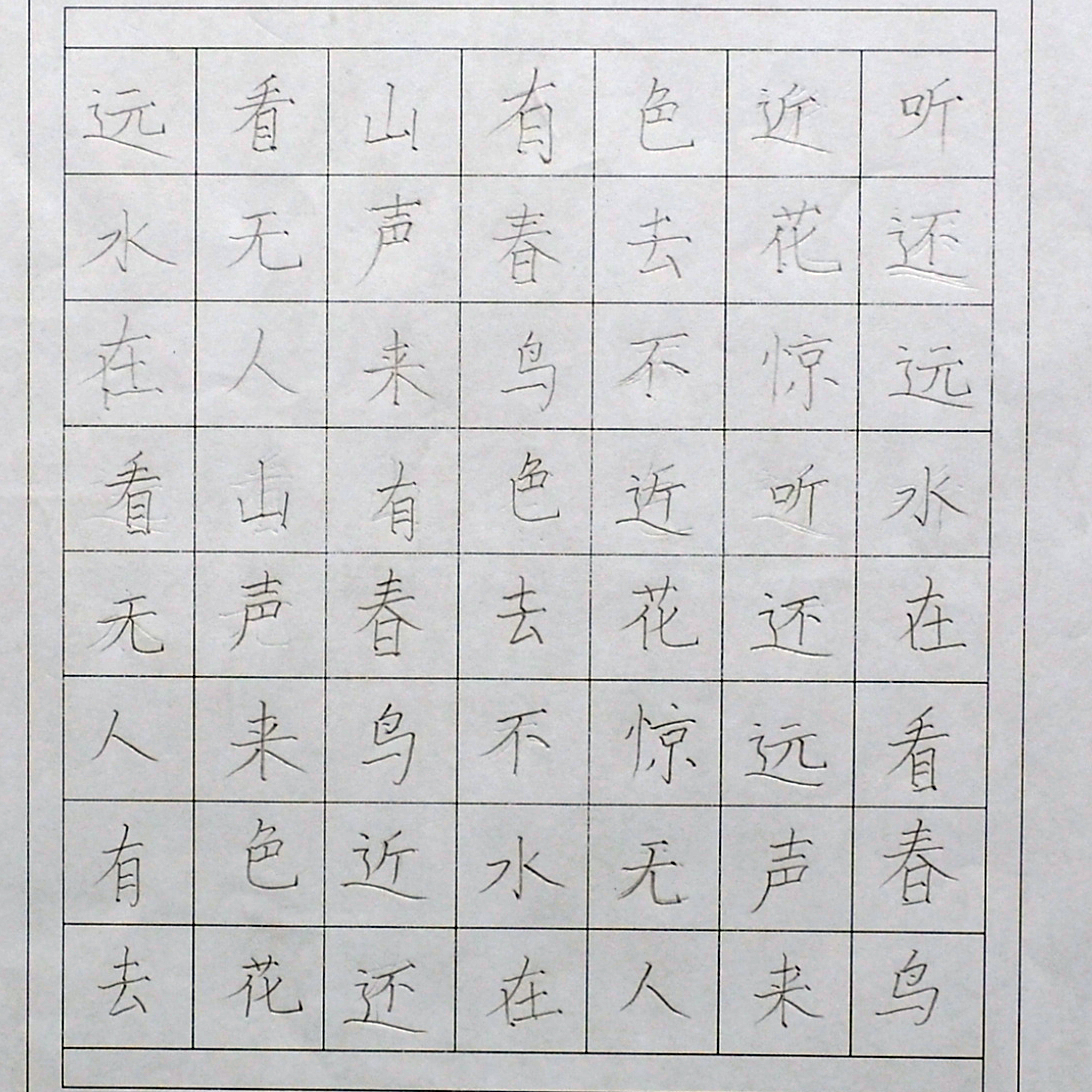 远看山有色近听
水无声春去花还
在人来鸟不惊远
看山有色近听水
无声春去花还在
人来鸟不惊远看
有色近水无声春
去花还在人来鸟